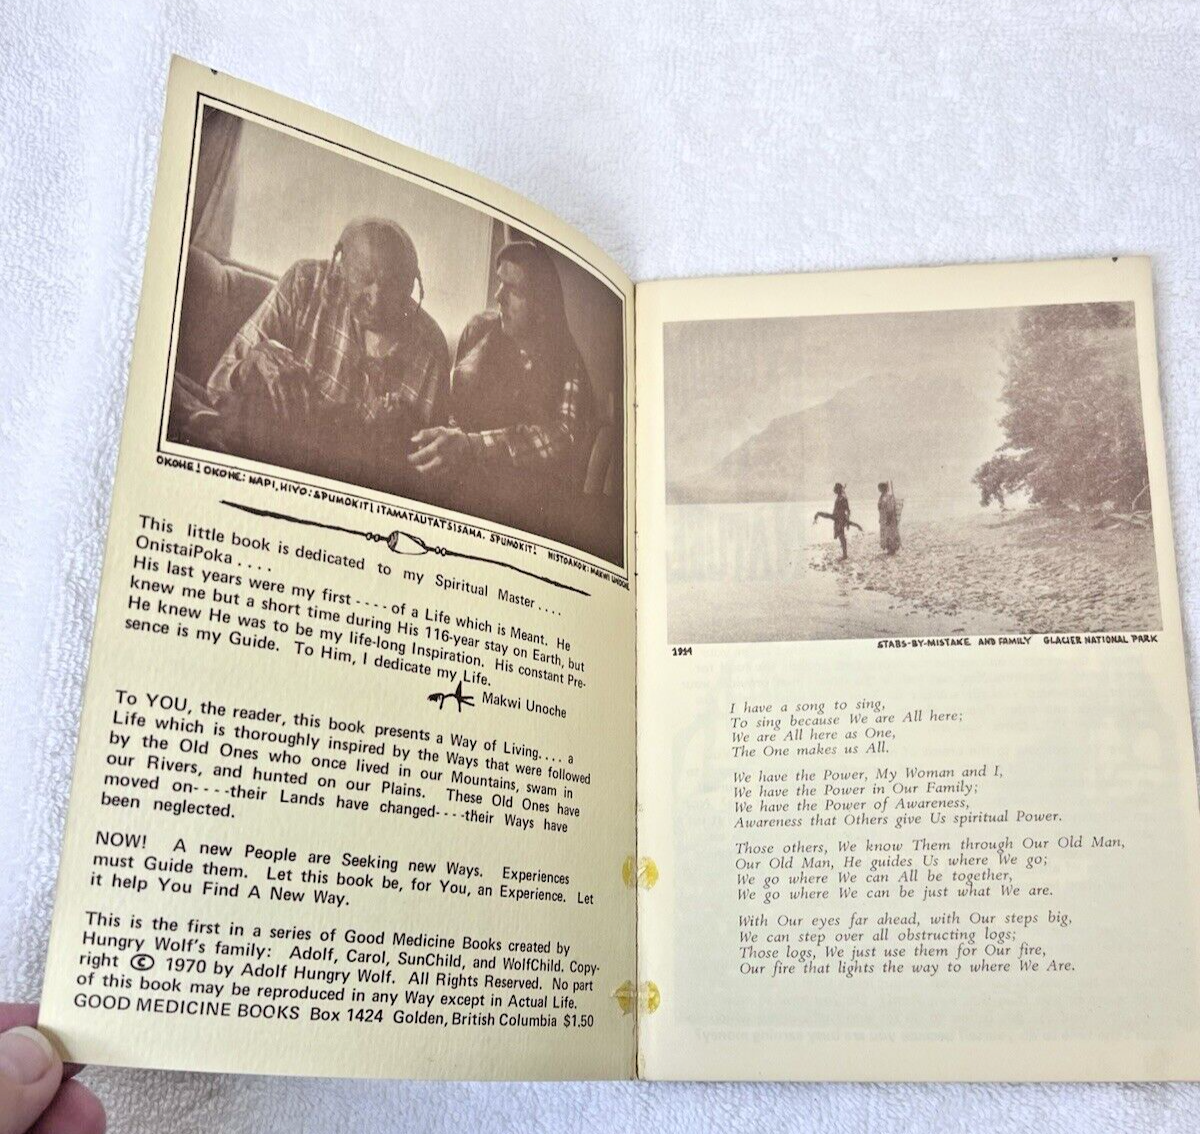 OKOHE! OKOHE: NAPI, HIYO: SPUMOKIT! ITAMATAUTATSISAMA. SPUMOKIT! NISTOAKOK: MAKWI UNOCHE
This little book is dedicated to my Spiritual Master . . . .
OnistaiPoka . . . .
His last years were my first - - - - of a Life which is Meant. He
knew me but a short time during His 116-year stay on Earth, but
He knew He was to be my life-long Inspiration. His constant Pre-
sence is my Guide. To Him, I dedicate my Life.
Makwi Unoche
To YOU, the reader, this book presents a Way of Living. . . . a
Life which is thoroughly inspired by the Ways that were followed
by the Old Ones who once lived in our Mountains, swam in
our Rivers, and hunted on our Plains. These Old Ones have
moved on- - - -their Lands have changed- - - -their Ways have
been neglected.
NOW! A new People are Seeking new Ways. Experiences
must Guide them. Let this book be, for You, an Experience. Let
it help You Find A New Way.
This is the first in a series of Good Medicine Books created by
Hungry Wolf's family: Adolf, Carol, SunChild, and WolfChild. Copy-
right © 1970 by Adolf Hungry Wolf. All Rights Reserved. No part
of this book may be reproduced in any Way except in Actual Life.
GOOD MEDICINE BOOKS Box 1424 Golden, British Columbia $1.50
1914 STABS-BY-MISTAKE AND FAMILY GLACIER NATIONAL PARK
I have a song to sing,
To sing because We are All here;
We are All here as One,
The One makes us All.
We have the Power, My Woman and I,
We have the Power in Our Family;
We have the Power of Awareness,
Awareness that Others give Us spiritual Power.
Those others, We know Them through Our Old Man,
Our Old Man, He guides Us where We go;
We go where We can All be together,
We go where We can be just what We are.
With Our eyes far ahead, with Our steps big,
We can step over all obstructing logs;
Those logs, We just use them for Our fire,
Our fire that lights the way to where We Are.